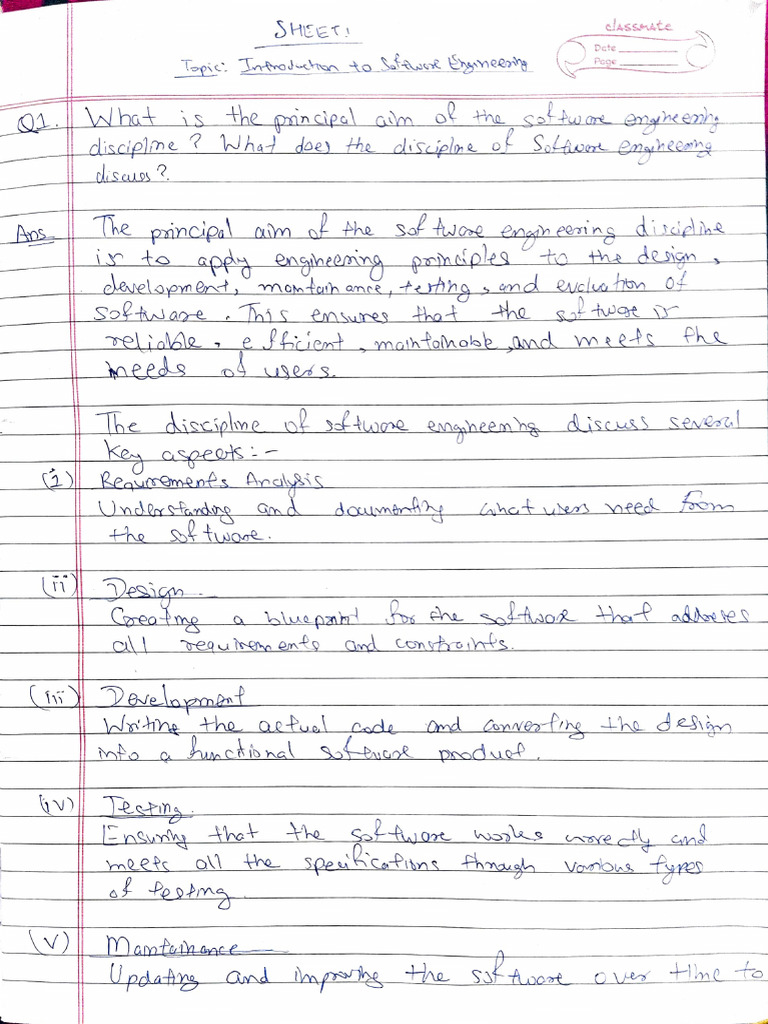 SHEET!
classmate
Date
Page
Topic: Introduction to Software Engineering
Q1. What is the principal aim of the software engineering
discipline? What does the discipline of Software engineering
discuss?
Ans The principal aim of the software engineering discipline
is to apply engineering principles to the design,
development, maintainance, testing, and evaluation of
software. This ensures that the software is
reliable, efficient, maintainable, and meets the
needs of users.
The discipline of software engineering discuss several
key aspects:-
(i) Requirements Analysis
Understanding and documenting what users need from
the software.
(ii) Design
Creating a blueprint for the software that addresses
all requirements and constraints.
(iii) Development
Writing the actual code and converting the design
into a functional software product.
(iv) Testing.
Ensuring that the software works correctly and
meets all the specifications through various types
of testing
(v) Maintainance
Updating and improving the software over time to